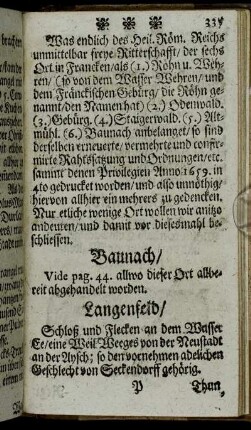 337
Was endlich des Heil. Röm. Reichs
unmittelbar freye Ritterschafft/ der sechs
Ort in Francken/als (1.) Rohn u. Weh-
ren/ (so von dem Wasser Wehren/und
dem Fränckischen Gebürg/ die Röhn ge-
nannt/den Namen hat) (2.) Odenwald.
(3.) Gebürg. (4.) Staigerwald. (5.) Alt-
mühl. (6.) Baunach anbelanget/ so sind
derselben erneuerte/vermehrte und confir-
mirte Rahtssatzung und Ordnungen/etc.
sammt denen Privilegien Anno 1659. in
4to gedrucket worden/und also unnöthig/
hiervon allhier ein mehrers zu gedencken.
Nur etliche wenige Ort wollen wir anitzo
andeuten/ und damit vor diesesmahl be-
schliessen.
Baunach/
Vide pag. 44. allwo dieser Ort allbe-
reit abgehandelt worden.
Langenfeld/
Schloß und Flecken an dem Wasser
Ee/eine Weil Weeges von der Neustadt
an der Aysch; so den vornehmen adelichen
Geschlecht von Seckendorff gehörig.
P Than/